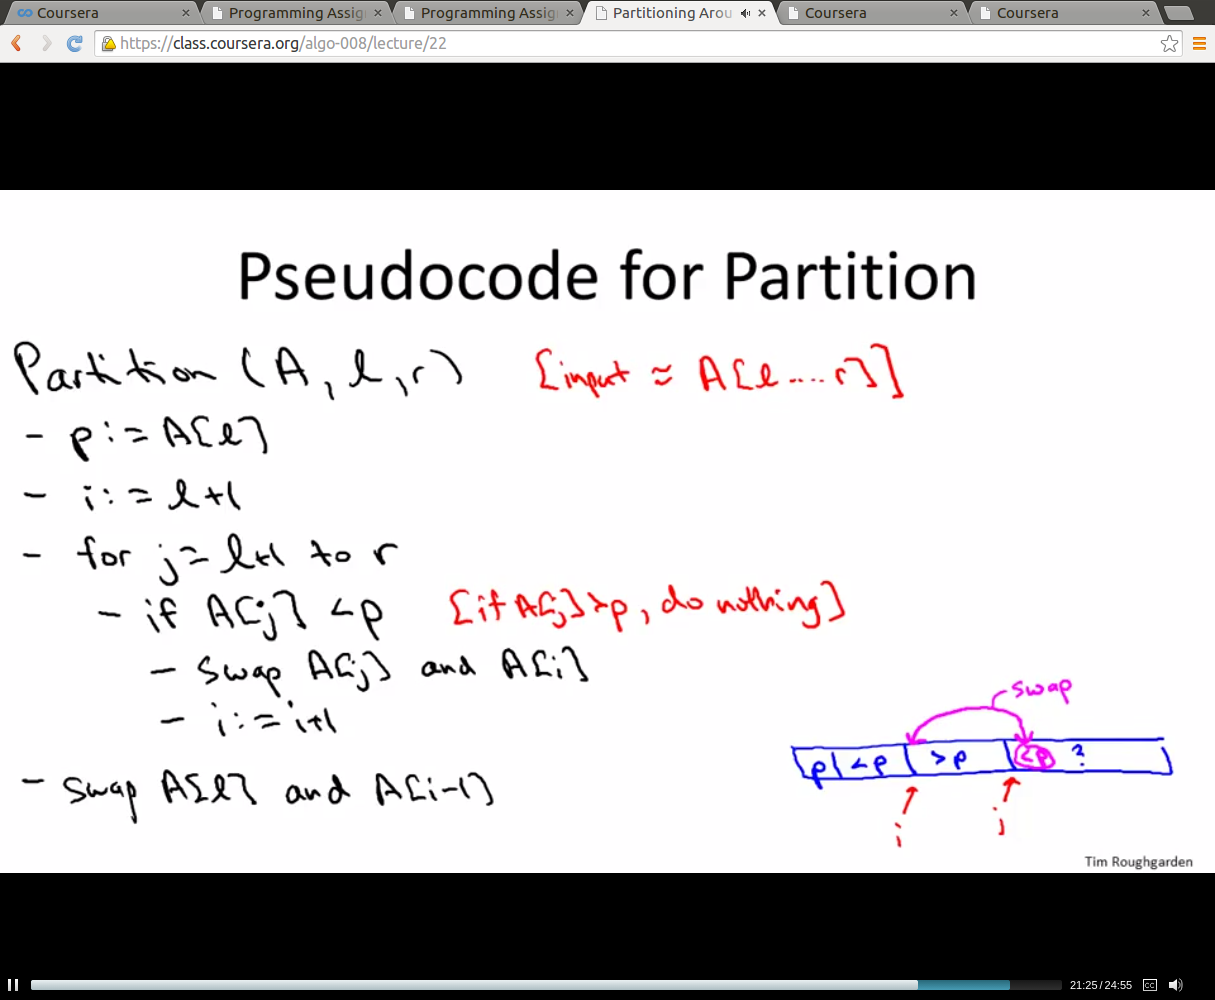 Coursera
Programming Assig
Programming Assig
Partitioning Arou
Coursera
Coursera
https://class.coursera.org/algo-008/lecture/22
Pseudocode for Partition
Partition (A, l, r) [input ≈ A[l....r]]
- p := A[l]
- i := l+1
- for j = l+1 to r
- if A[j] < p [if A[j] > p, do nothing]
- swap A[j] and A[i]
- i := i+1
- swap A[l] and A[i-1]
swap
p | <p | >p | <p ?
i
j
Tim Roughgarden
21:25 / 24:55
CC